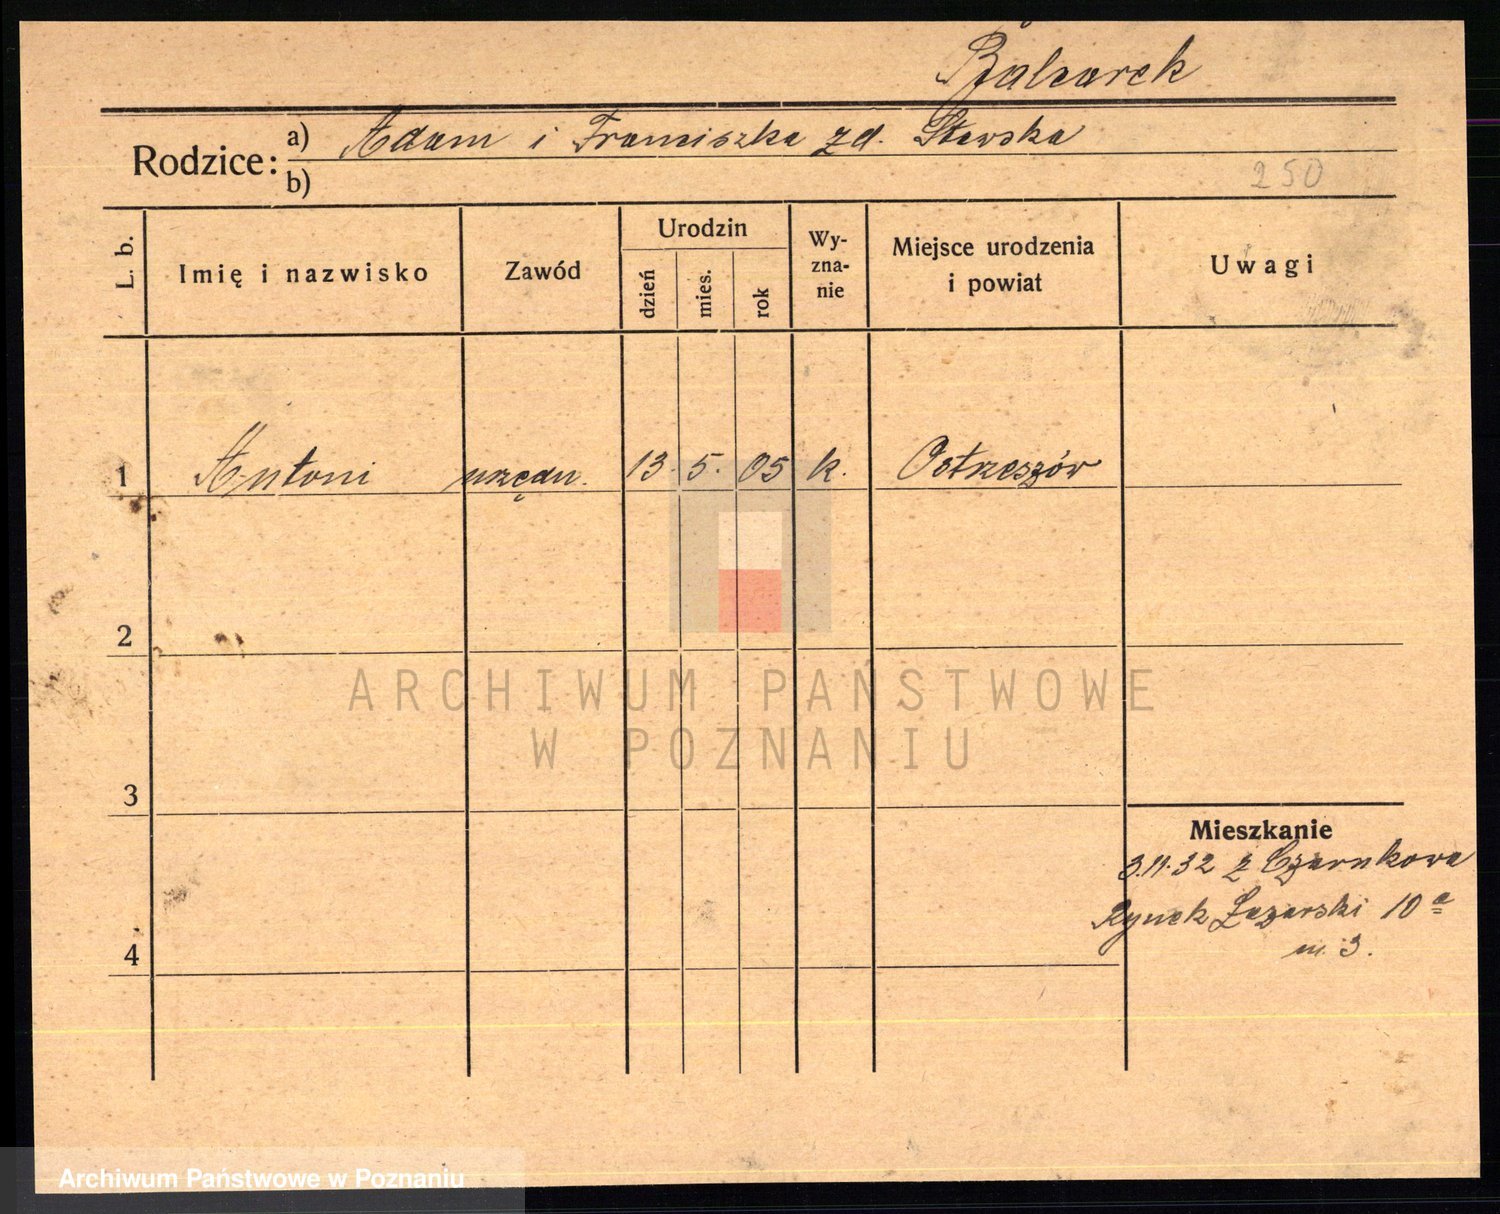 Balcarek
Rodzice: a) Adam i Franciszka zd. Stawska
b)
250
L. b.
Imię i nazwisko
Zawód
Urodzin
dzień
mies.
rok
Wy-
zna-
nie
Miejsce urodzenia
i powiat
Uwagi
1 Antoni urzędn. 13. 5. 05 k. Ostrzeszów
2
3
4
Mieszkanie
3.11.32 z Czarnkowa
Rynek Łazarski 10 a
m. 3.
ARCHIWUM PAŃSTWOWE
W POZNANIU
Archiwum Państwowe w Poznaniu